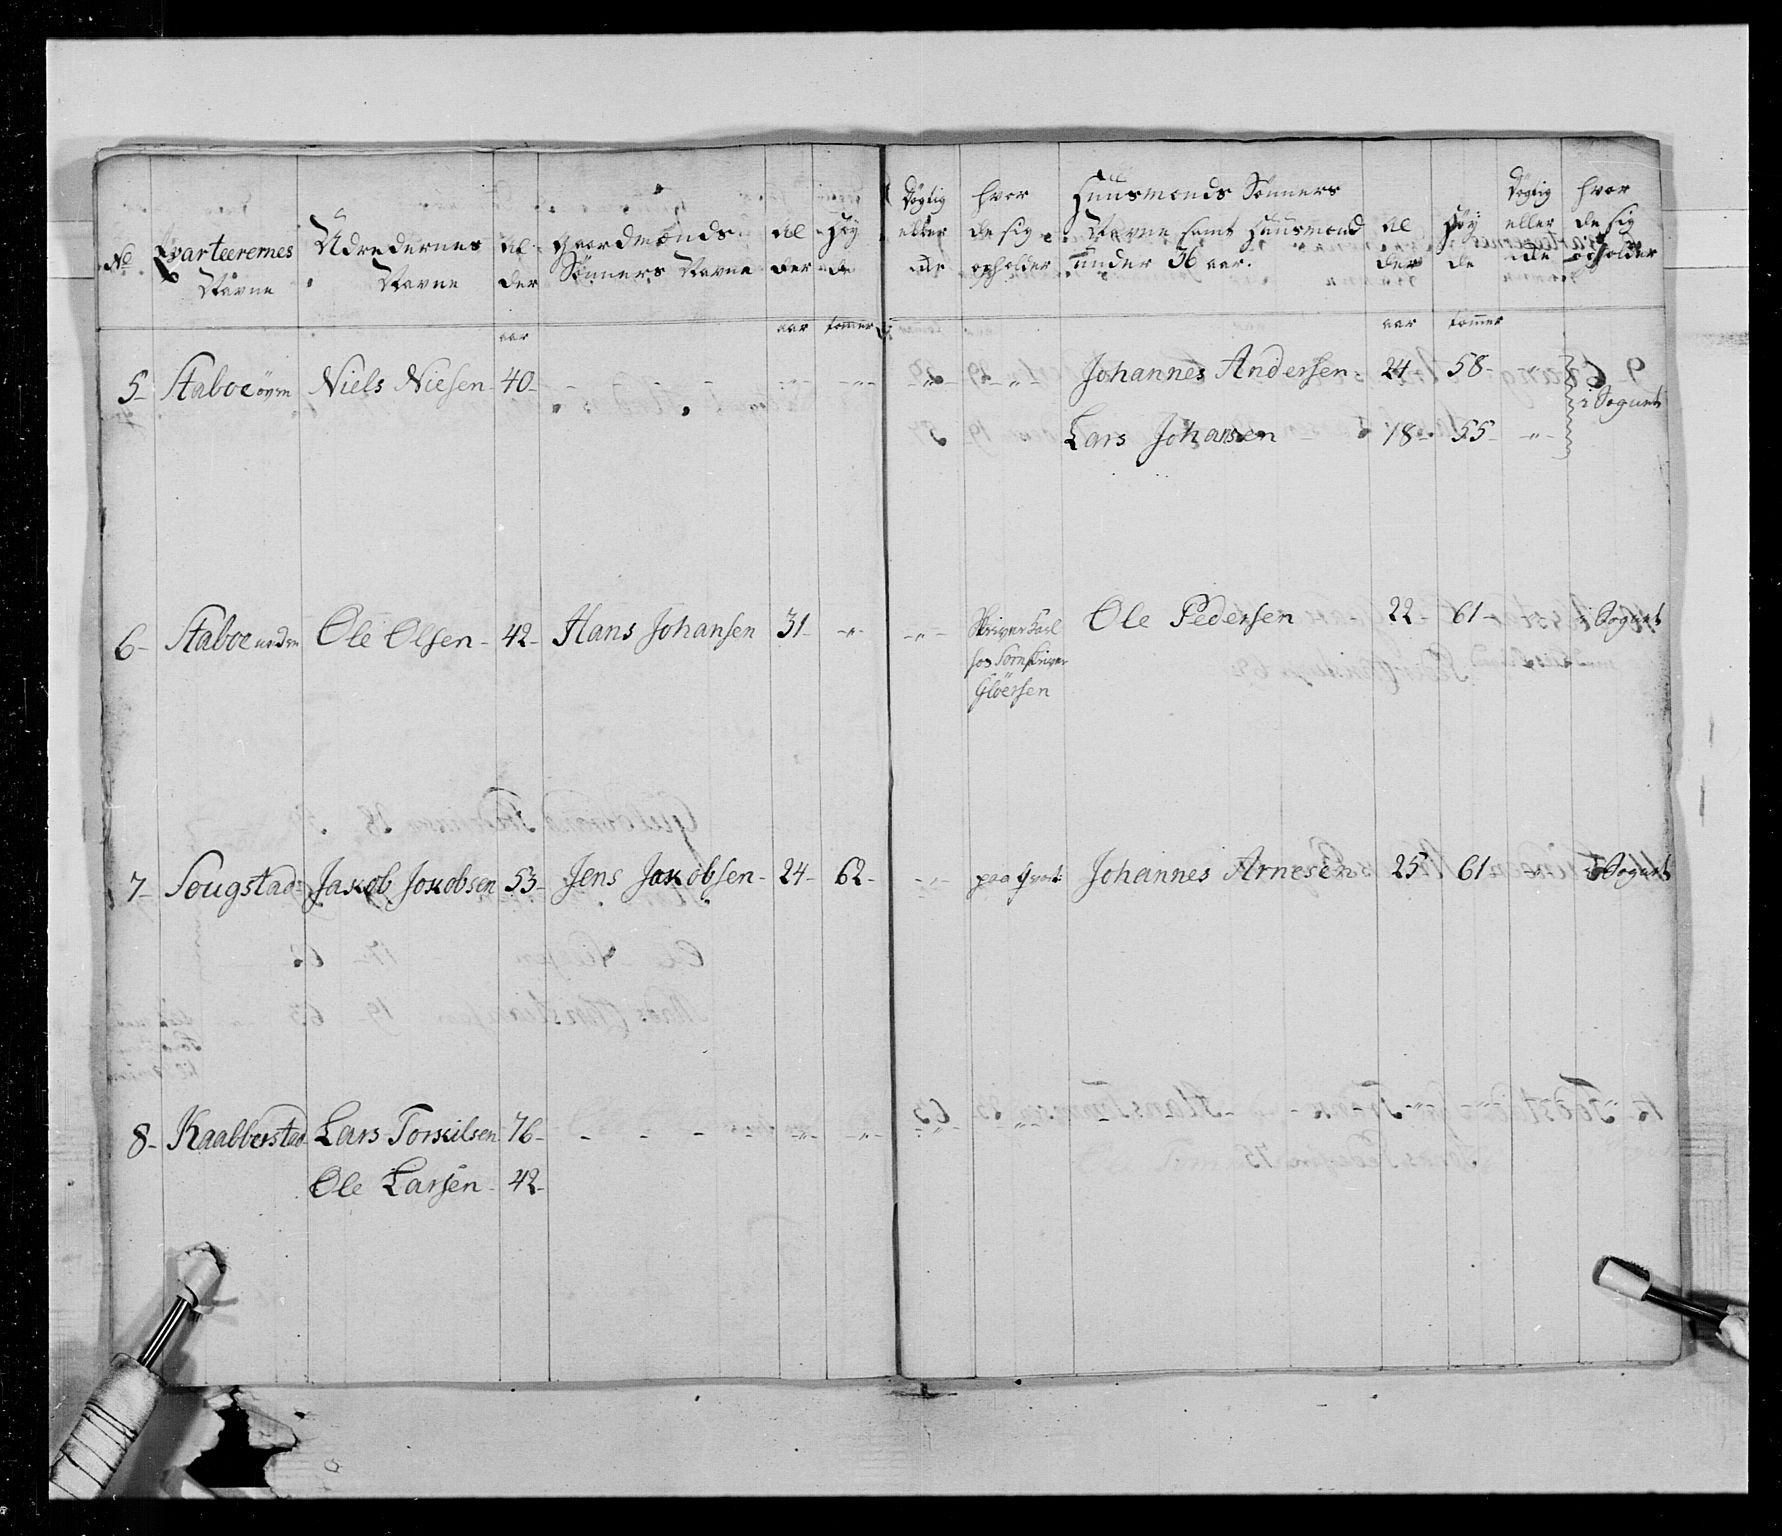 No Qvarteerernes Navne | Udredernes Navne | Al der | Gaardmænds Sönners Navne | Al der | Höy de | Dögtig eller ude | hvor de sig opholder | Huusmænds Sönners Navne samt Huusmænd under 36 aar. | Al der | Höy de | Dögtig eller ude | hvor de sig opholder
aar | aar | tommer | aar | tommer
5 Staboe övre Niels Nielsen 40 - - - Johannes Andersen 24 58 -"- i Sognet
Lars Johansen 18 55 -"-
6 Staboe neden Ole Olsen 42 Hans Johansen 31 -"- -"- Skriver Karl hos Sorenskriver Glöersen Ole Pedersen 22 61 i Sognet
7 Sougstad Jakob Jokobsen 53 Jens Jakobsen 24 62 -"- paa qvart: Johannes Arnesen 25 61 -"- i Sognet
8 Kaalberstad Lars Torkilsen 76 - - - - -"- -"- -"-
Ole Larsen 42